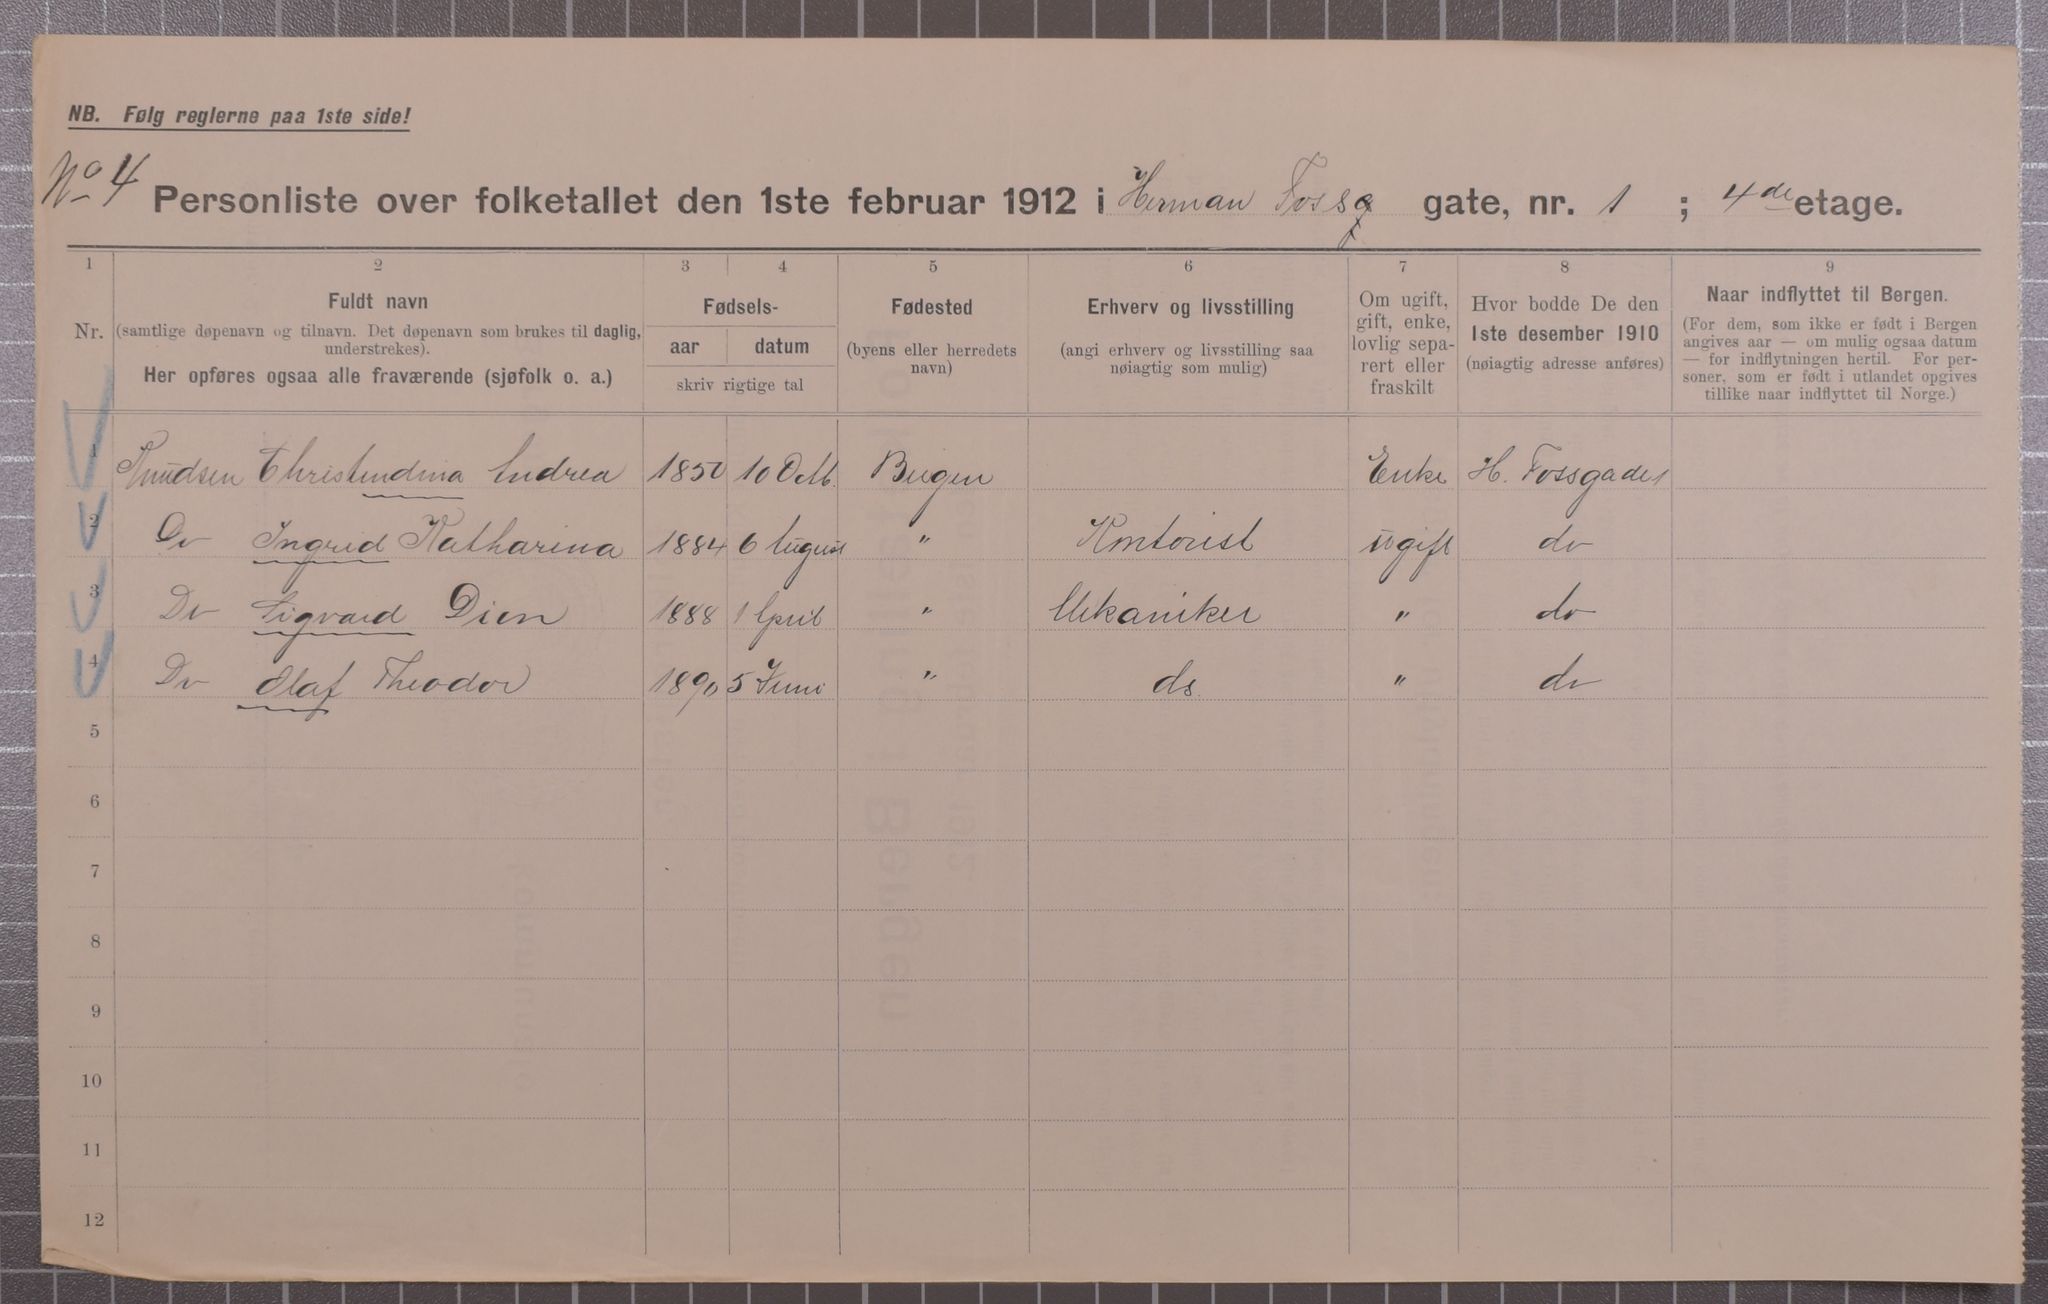 NB. Følg reglerne paa 1ste side!
No 4
Personliste over folketallet den 1ste februar 1912 i Herman Foss gate, nr. 1 ; 4de etage.
1 2 3 4 5 6 7 8 9
Nr.
Fuldt navn
(samtlige døpenavn og tilnavn. Det døpenavn som brukes til daglig, understrekes).
Her opføres ogsaa alle fraværende (sjøfolk o. a.)
Fødsels-
aar datum
skriv rigtige tal
Fødested
(byens eller herredets
navn)
Erhverv og livsstilling
(angi erhverv og livsstilling saa
nøiagtig som mulig)
Om ugift,
gift, enke,
lovlig sepa-
rert eller
fraskilt
Hvor bodde De den
1ste desember 1910
(nøiagtig adresse anføres)
Naar indflyttet til Bergen.
(For dem, som ikke er født i Bergen
angives aar — om mulig ogsaa datum
— for indflytningen hertil. For per-
soner, som er født i utlandet opgives
tillike naar indflyttet til Norge.)
1 Knudsen Christendina Andrea 1850 10 Octb. Bergen Enke H. Fossgade 1
2 Do Ingrid Katharina 1884 6 August " Kontorist ugift do
3 Do Sigvard Dien 1888 1 April " Mekaniker " do
4 Do Olaf Theodor 1890 5 Juni " do. " do
5
6
7
8
9
10
11
12